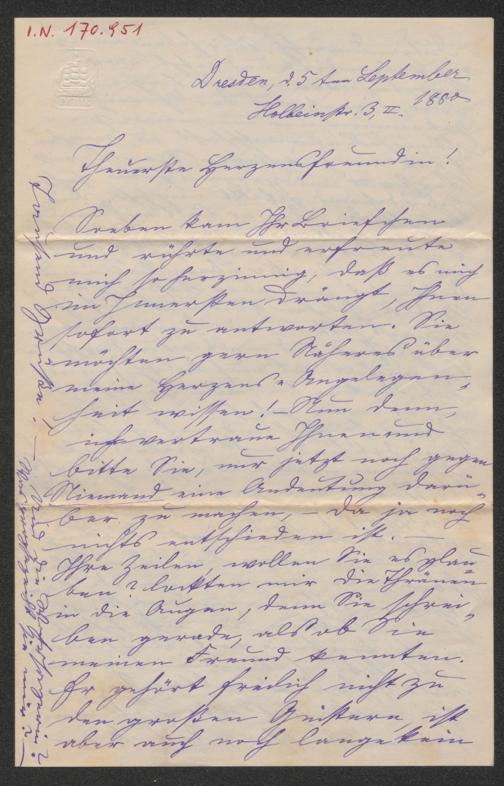 I.N. 170.951
Dresden, d. 5ten September
1880
Holbeinstr. 3, II.
Theuerste Herzensfreundin!
Soeben kam Ihr Briefchen
und rührte und erfreute
mich so herzinnig, daß es mich
im Innersten drängt, Ihnen
sofort zu antworten. Sie
möchten gern Näheres über
meine Herzens-Angelegen-
heit wissen! – Nun denn,
ich vertraue Ihnen und
bitte Sie, nur jetzt noch gegen
Niemand eine Andeutung darü-
ber zu machen, – da ja noch
nichts entschieden ist. –
Ihre Zeilen, wollen Sie es glau-
ben? lockten mir die Thränen
in die Augen, denn Sie schrei-
ben gerade, als ob Sie
meinen Freund kennten.
Er gehört freilich nicht zu
den großen Geistern, ist
aber auch noch lange kein
Tausend Grüße! –